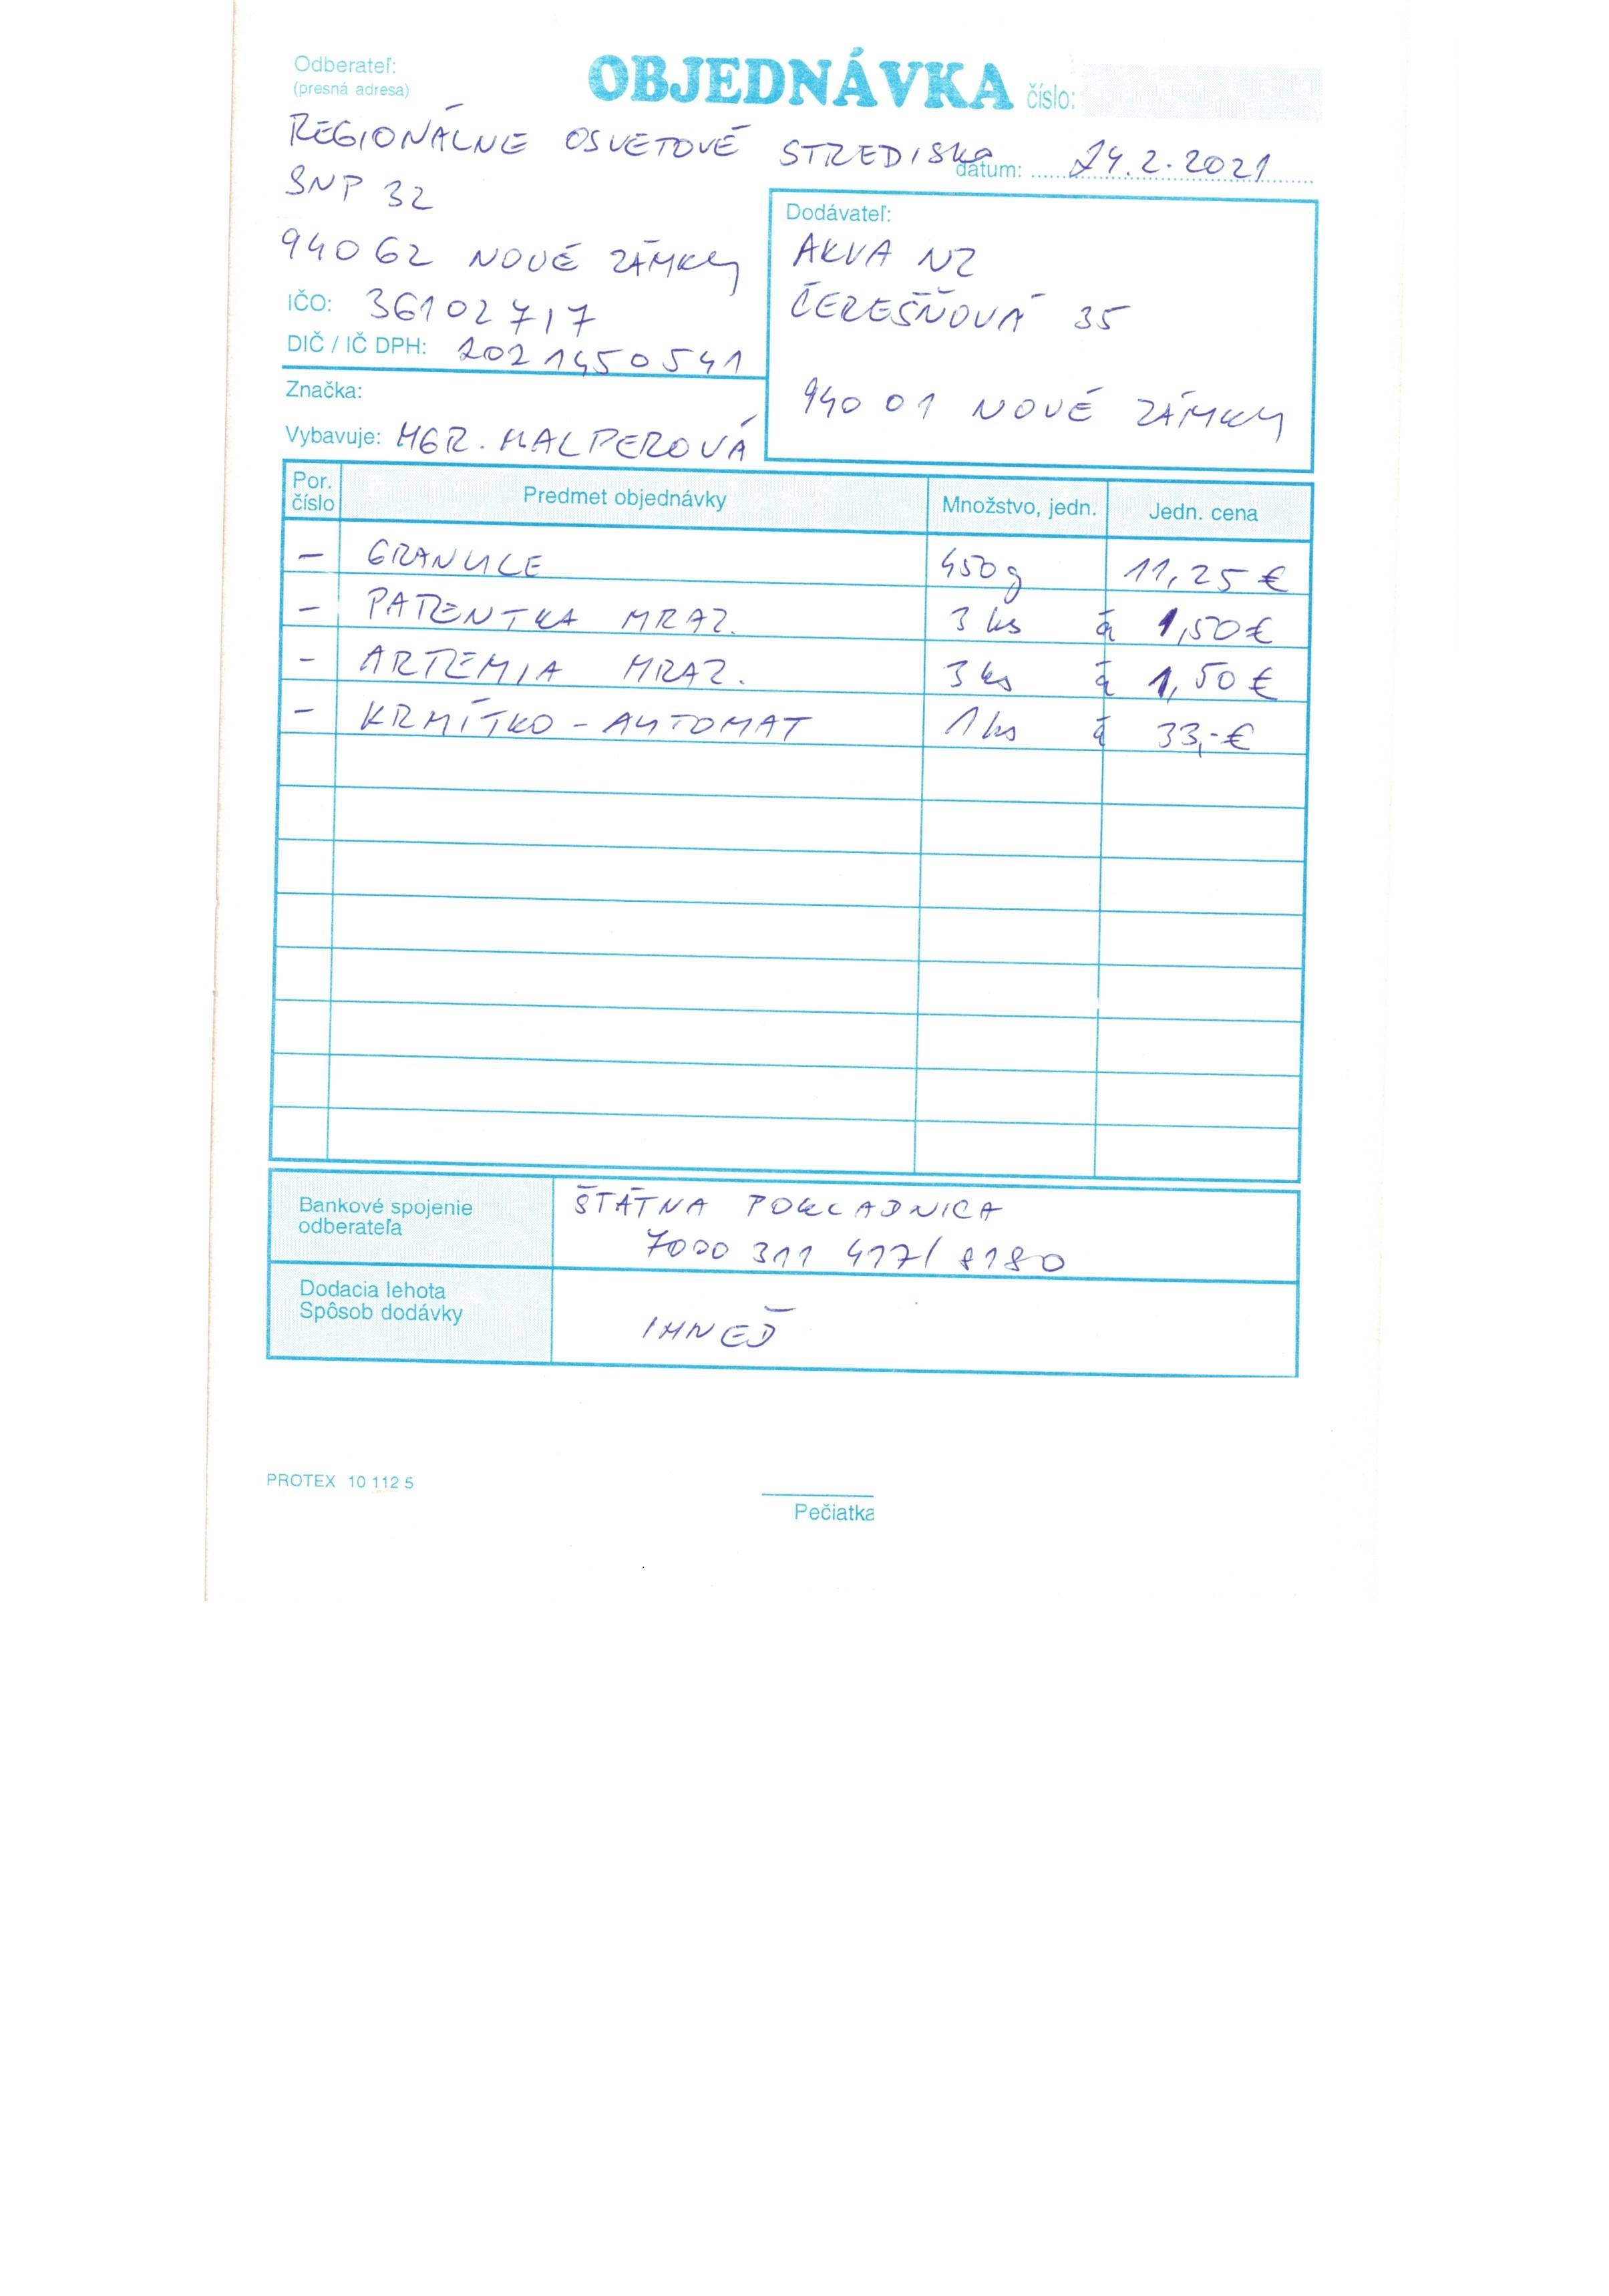 Odberateľ:
(presná adresa)
OBJEDNÁVKA číslo:
REGIONÁLNE OSVETOVÉ STREDISKO
dátum: 24.2.2021
SNP 32
940 62 NOVÉ ZÁMKY
IČO: 36102717
DIČ / IČ DPH: 2021450541
Značka:
Vybavuje: MGR. MALPEROVÁ
Dodávateľ:
AKVA NZ
ČEREŠŇOVÁ 35
940 01 NOVÉ ZÁMKY
Por. číslo Predmet objednávky Množstvo, jedn. Jedn. cena
- GRANULE 450g 11,25 €
- PATENTKA MRAZ. 3 ks á 1,50 €
- ARTEMIA MRAZ. 3 ks á 1,50 €
- KRMÍTKO - AUTOMAT 1 ks á 33,- €
Bankové spojenie
odberateľa
ŠTÁTNA POKLADNICA
7000 311 417/8180
Dodacia lehota
Spôsob dodávky
IHNEĎ
PROTEX 10 112 5
Pečiatka